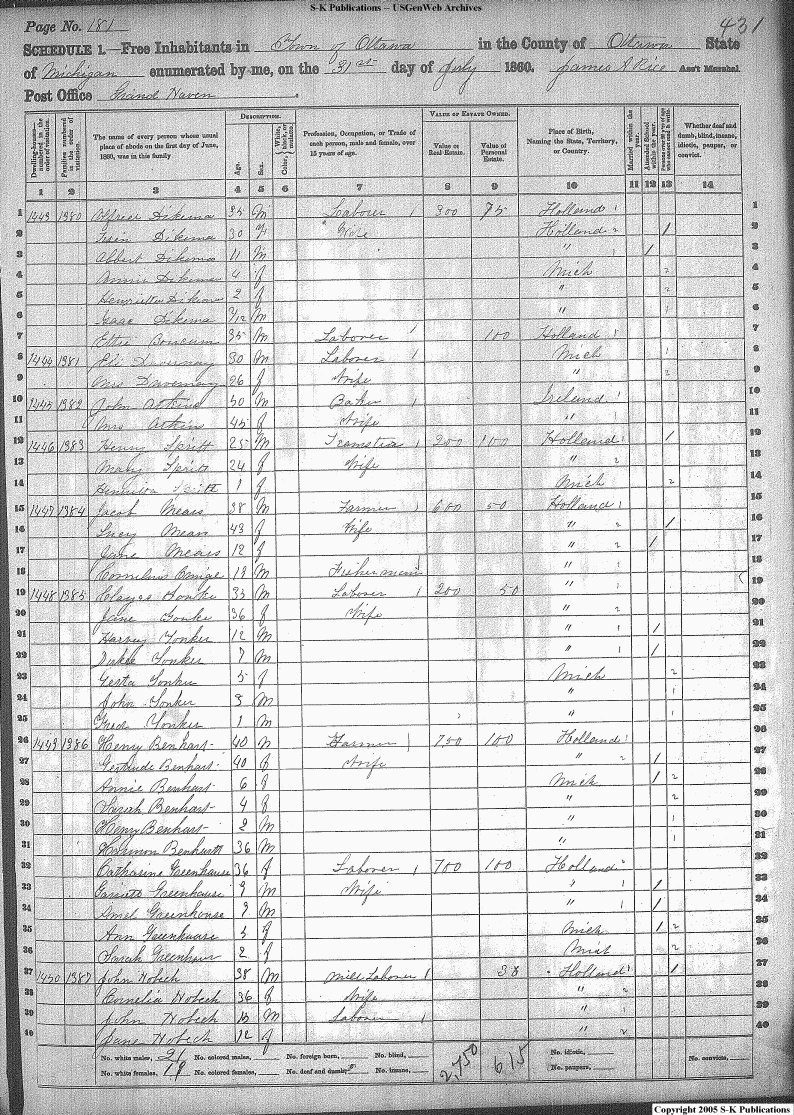 S-K Publications -- USGenWeb Archives
Page No. 181
431
SCHEDULE 1.—Free Inhabitants in Town of Ottawa in the County of Ottawa State
of Michigan enumerated by me, on the 31st day of July 1860. James A Rice Ass't Marshal.
Post Office Grand Haven
DESCRIPTION. VALUE OF ESTATE OWNED.
Dwelling-houses—numbered in the order of visitation. Families numbered in the order of visitation. The name of every person whose usual place of abode on the first day of June, 1860, was in this family Age. Sex. Color, White, black, or mulatto. Profession, Occupation, or Trade of each person, male and female, over 15 years of age. Value of Real Estate. Value of Personal Estate. Place of Birth, Naming the State, Territory, or Country. Married within the year. Attended School within the year. Persons over 20 y'rs of age who cannot read & write. Whether deaf and dumb, blind, insane, idiotic, pauper, or convict.
1 2 3 4 5 6 7 8 9 10 11 12 13 14
1 1443 1380 Dikema 35 M Labourer 1 300 75 Holland 1 1
2 Dikema 30 f Wife Holland 2 / 2
3 Albert Dikema 11 M " 1 / 3
4 Annie Dikema 4 f Mich 2 4
5 Henrietta Dikema 2 f " 2 5
6 Isaac Dikema /12 M " 1 6
7 35 M Laborer 100 Holland 1 7
8 1444 1381 Eli 30 M Laborer 1 Mich 1 8
9 Mrs 26 f Wife " 2 9
10 1445 1382 John Atkins 50 M Baker 1 Ireland 1 10
11 Mrs Atkin 45 f Wife " 11
12 1446 1383 Henry Spritt 25 M Teamster 1 200 100 Holland 1 / 12
13 Mary Spritt 24 f Wife " 2 13
14 Henrietta 1 f Mich 2 14
15 1447 1384 Jacob Mears 38 M Farmer 1 600 50 Holland 1 15
16 Lucy Mears 43 f Wife " 2 / 16
17 Jane Mears 12 f " 2 / 17
18 Cornelius 19 M Fisherman 1 " 1 18
19 1448 1385 33 M Laborer 1 200 50 " 1 19
20 Jane Yonker 36 f Wife " 2 20
21 Harvey Yonker 12 M " 1 / 21
22 Yonker 7 M " 1 / 22
23 Yonker 5 f Mich 2 23
24 John Yonker 3 M " 1 24
25 Fred Yonker 1 M " 1 25
26 1449 1386 Henry Benhart 40 M Farmer 1 700 100 Holland 1 26
27 Gertrude Benhart 40 f Wife " 2 / 27
28 Annie Benhart 6 f Mich / 2 28
29 Sarah Benhart 4 f " 2 29
30 Henry Benhart 2 M " 1 30
31 Harmon Benhart 36 M " 1 31
32 Catharine Greenhouse 36 f Laborer 1 700 100 Holland 2 32
33 Garrett Greenhouse 9 M Wife " 1 / 33
34 Greenhouse 9 M " 1 / 34
35 Ann Greenhouse 5 f Mich / 2 35
36 Sarah Greenhouse 2 f Mich 2 36
37 1450 1387 John Hobeck 38 M Mill Laborer 1 Holland 1 / 37
38 Cornelia Hobeck 36 f Wife " 2 38
39 John Hobeck 15 M Laborer 1 " 1 39
40 Jane Hobeck 12 f " 2 40
No. white males, 21 No. colored males, No. foreign born, No. blind, 2,750 615 No. idiotic, No. convicts,
No. white females, 19 No. colored females, No. deaf and dumb, No. insane, No. paupers,
Copyright 2005 S-K Publications